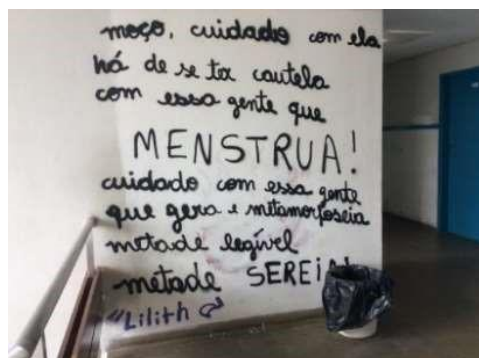 moço, cuidado com ela
há de se ter cautela
com essa gente que
MENSTRUA!
cuidado com essa gente
que gera e metamorfoseia
metade legível
metade SEREIA!
"Lilith